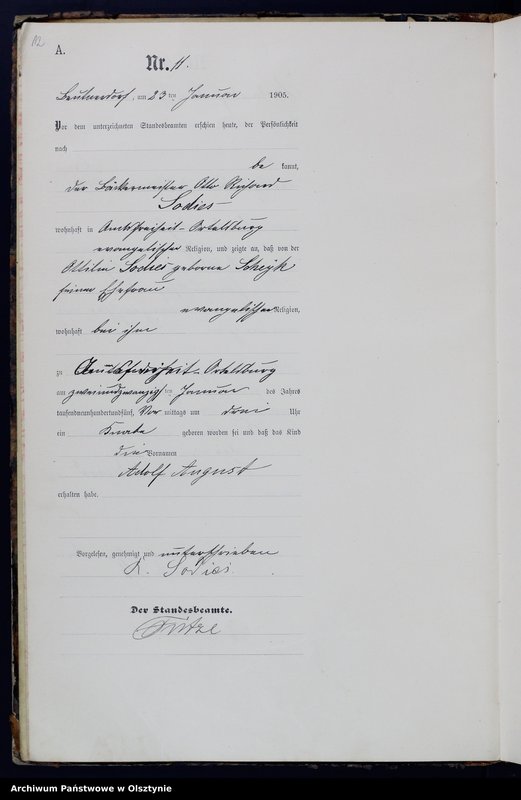 112
A.
Nr. 11.
Beutnerdorf, am 23 ten Januar 1905.
Vor dem unterzeichneten Standesbeamten erschien heute, der Persönlichkeit
nach
be kannt,
der Bäckermeister Otto Richard
Sodies
wohnhaft in Amtsfreiheit-Ortelsburg
evangelischer Religion, und zeigte an, daß von der
Ottilie Sodies geborne
seiner Ehefrau
evangelischer Religion,
wohnhaft bei ihm
zu Amtsfreiheit-Ortelsburg
am zweiundzwanzig ten Januar des Jahres
tausendneunhundertundfünf, Vor mittags um drei Uhr
ein Knabe geboren worden sei und daß das Kind
die Vornamen
Adolf August
erhalten habe.
Vorgelesen, genehmigt und unterschrieben
Sodies
Der Standesbeamte.
Archiwum Państwowe w Olsztynie